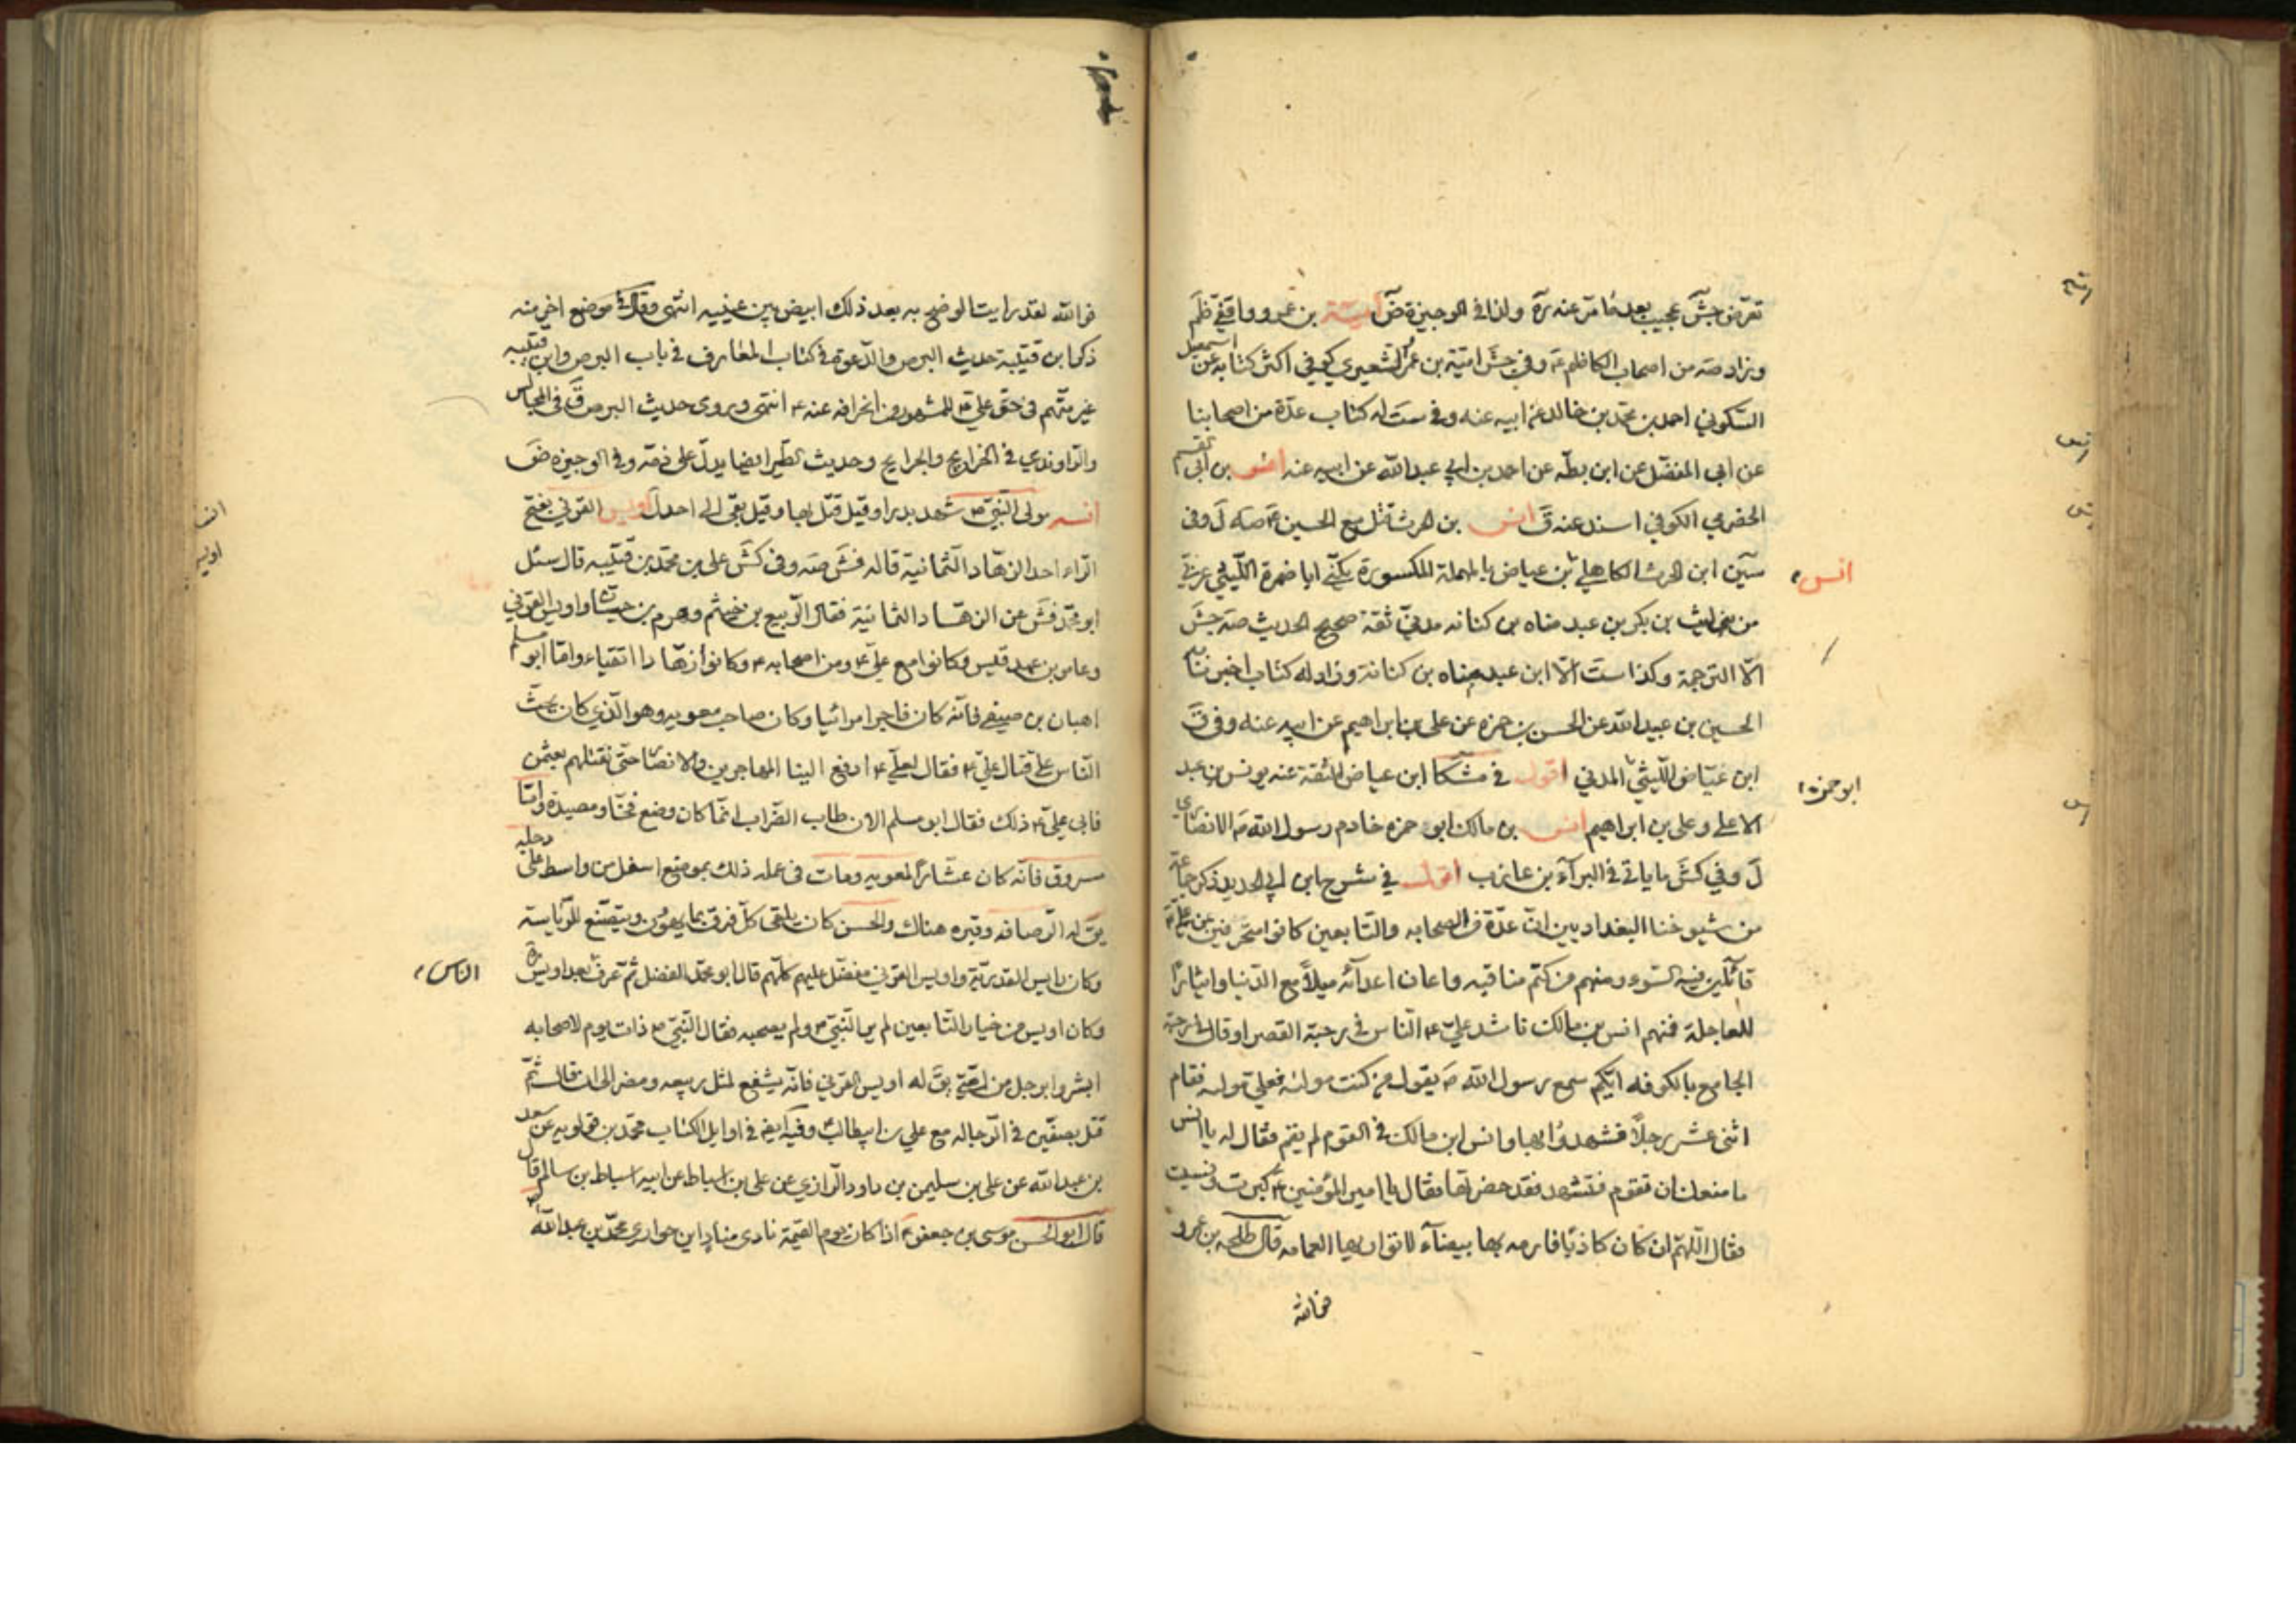 تعرض جش عجيب بعدما مر عنه مرة ولذا في الوجيزة ض أمية بن عمرو واقفي ظم
وزاد صه من اصحاب الكاظم ع وفي جش امية بن عمر الشعيري كوفي اكثر كتابه عن اسمعيل
السكوني احمد بن محمد بن خالد عن ابيه عنه وفي ست له كتاب عدة من اصحابنا
عن ابي المفضل عن ابن بطه عن احمد بن ابي عبد الله عن ابيه عنه انس بن ابي القسم
الحضرمي الكوفي اسند عنه ق انس بن الحرث قتل مع الحسين ع صه ل وفي
سين ابن الحرث الكاهلي بن عياض بالمهملة المكسورة يكنى ابا ضمرة الليثي عربي
انس
من بني ليث بن بكر بن عبد مناه بن كنانه مدني ثقة صحيح الحديث صه جش
الا الترجمة وكذا ست الا ابن عبد مناه بن كنانة وزاد له كتاب اخبرنا
الحسين بن عبيد الله عن الحسن بن حمزه عن علي بن ابراهيم عن ابيه عنه وفي ق
ابن عياض الليثي المدني اقول في مشكا ابن عياض الثقة عنه يونس بن عبد
ابو حمزه
الاعلى وعلي بن ابراهيم انس بن مالك ابو حمزه خادم رسول الله ص الانصاري
ل وفي كش ما ياتي في البراء بن عازب اقول في شرح ابن ابي الحديد ذكر جماعة
من شيوخنا البغداديين ان عدة من الصحابه والتابعين كانوا منحرفين عن علي ع
قائلين فيه السوء ومنهم من كتم مناقبه واعان اعدائه ميلا مع الدنيا وايثارا
للعاجلة فمنهم انس بن مالك ناشد علي ع الناس في رحبة القصر او قال رحبة
الجامع بالكوفه ايكم سمع رسول الله ص يقول من كنت مولاه فعلي مولاه فقام
اثنى عشر رجلا فشهدوا بها وانس ابن مالك في القوم لم يقم فقال له يا انس
ما منعك ان تقوم فتشهد فقد حضرتها فقال يا امير المؤمنين ع كبرت ونسيت
فقال اللهم ان كان كاذبا فارمه بها بيضآء لا تواريها العمامه قال طلحه بن عمرو
فوالله
فوالله لقد رايت الوضح به بعد ذلك ابيض بين عينيه انتهى وقال في موضع اخر منه
ذكر ابن قتيبة حديث البرص والدعوة في كتاب المعارف في باب البرص وابن قتيبه
غير متهم في حق علي ع للمشهور من انحرافه عنه ع انتهى وروى حديث البرص ق في المجالس
والراوندي في الخرايج والجرايح وحديث الطير ايضا يدل على ذمه وفي الوجيزه ض
انسه مولى النبي ص شهد بدرا وقيل قتل بها وقيل بقى الى احد ل اويس القرني بفتح
الراء احد الزهاد الثمانية قاله فش صه وفي كش علي بن محمد بن قتيبه قال سئل
ابو محمد فش عن الزهاد الثمانية فقال الربيع بن خيثم وهرم بن حيان واويس القرني
وعامر بن عبد قيس وكانوا مع علي ع ومن اصحابه ع وكانوا زهادا اتقياء واما ابو مسلم
اهبان بن صيفي فانه كان فاجرا مرائيا وكان صاحب معويه وهو الذي كان يحث
الناس على قتال علي ع فقال لعلي ع ادفع الينا المهاجرين والانصار حتى نقتلهم بعثمن
فابى علي ع ذلك فقال ابو مسلم الان طاب الضراب انما كان وضع فخا ومصيدة واما
مسروق فانه كان عشارا لمعويه ومات في عمله ذلك بموضع اسفل من واسط على دجله
يق له الرصافه وقبره هناك والحسن كان يلقى كل فرق بما يهوون ويتصنع للرياسة
وكان رايس القدرية واويس القرني مفضل عليهم كلهم قال ابو محمد الفضل ثم عرف الناس بعد اويس
الناس
وكان اويس من خيار التابعين لم ير النبي ص ولم يصحبه فقال النبي ص ذات يوم لاصحابه
ابشروا برجل من امتي يق له اويس القرني فانه يشفع لمثل ربيعه ومضر الى ان قال ثم
قتل بصفين في الرجاله مع علي بن ابيطالب ع وفيه ايضا في اوايل الكتاب محمد بن قولويه عن سعد
بن عبد الله عن علي بن سليمن بن داود الرازي عن علي بن اسباط عن ابيه اسباط بن سالم قال
قال ابو الحسن موسى بن جعفر ع اذا كان يوم القيمة نادى مناد اين حوارى محمد بن عبد الله